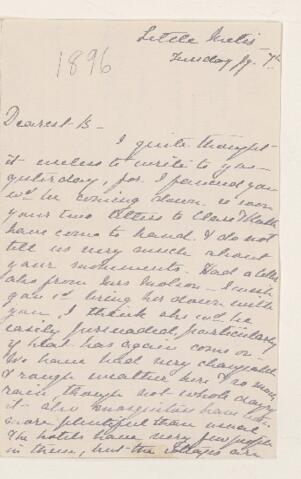 Little Metis -
Tuesday Jy. 7th
1896
Dearest B -
I quite thought
it useless to write to you -
yesterday, for I fancied you
wd be coming down so soon
your two letters to Clare &
have come to hand. I do not
tell us very much about
your movements. Had a letter
also from Mrs Molson - I wish
you cd bring her down with
you, I think she wd be
easily persuaded, particularly
if that has again come on -
We have had very changeable
& rough weather here & so many
rain, though not whole days
it - also mosquitoes have
more plentiful than usual -
The hotels have very few people
in them, but the cottages are